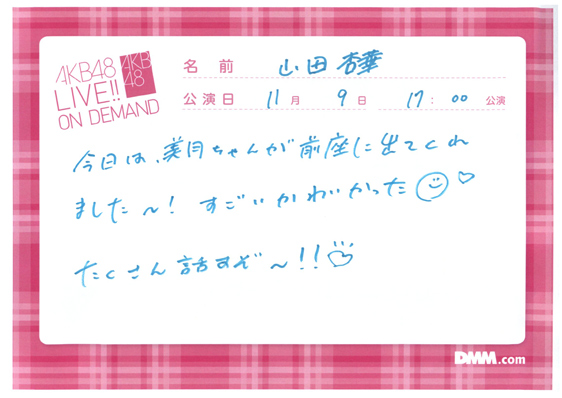 AKB48
LIVE!!
ON DEMAND
AKB
48
名前 山田杏華
公演日 11月 9日 17:00 公演
今日は、美月ちゃんが前座に出てくれ
ました〜! すごいかわいかった
たくさん話すぞ〜!!
DMM.com